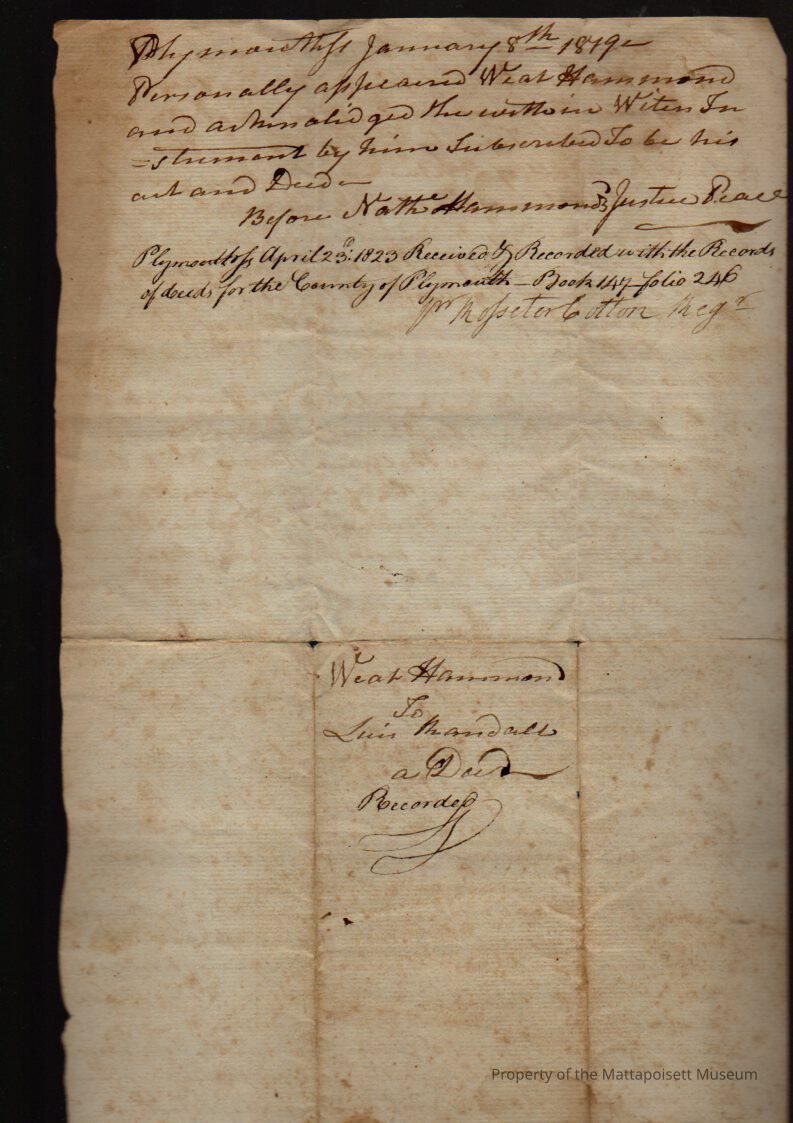 Plymouth ss January 8th 1819
Personally appeared Weat Hammond
and acknolidged the within Witen In
=strument by him Subscribed To be his
act and Deed
Before Nathl Hammond Justice Peace
Plymouth ss April 23d 1823 Received & Recorded with the Records
of deeds for the County of Plymouth - Book 147 folio 246
pr Rosseter Cotton Regr
Weat Hammond
To
Luis Randall
a Deed
Recorded
Property of the Mattapoisett Museum